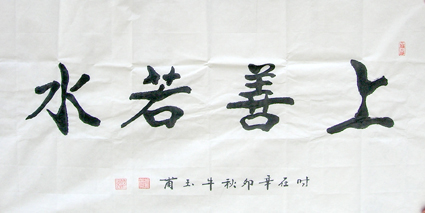 上善若水
时在辛卯秋牛玉甫